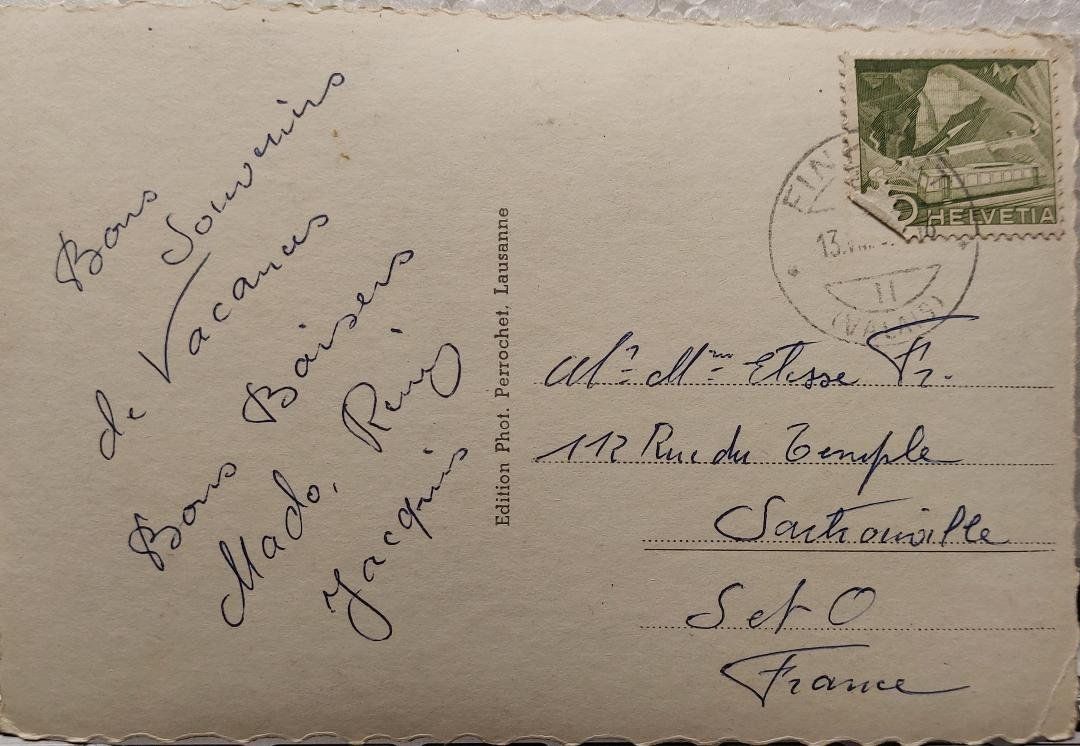 Bons
Souvenirs
de Vacances
Bons Baisers
Mado, Rémy
Jacquis
Edition Phot. Perrochet, Lausanne
5 HELVETIA
FIN
13.VIII.
11
(VALAIS)
Mr Mme Elisse Fr.
112 Rue du Temple
Sartrouville
S et O
France